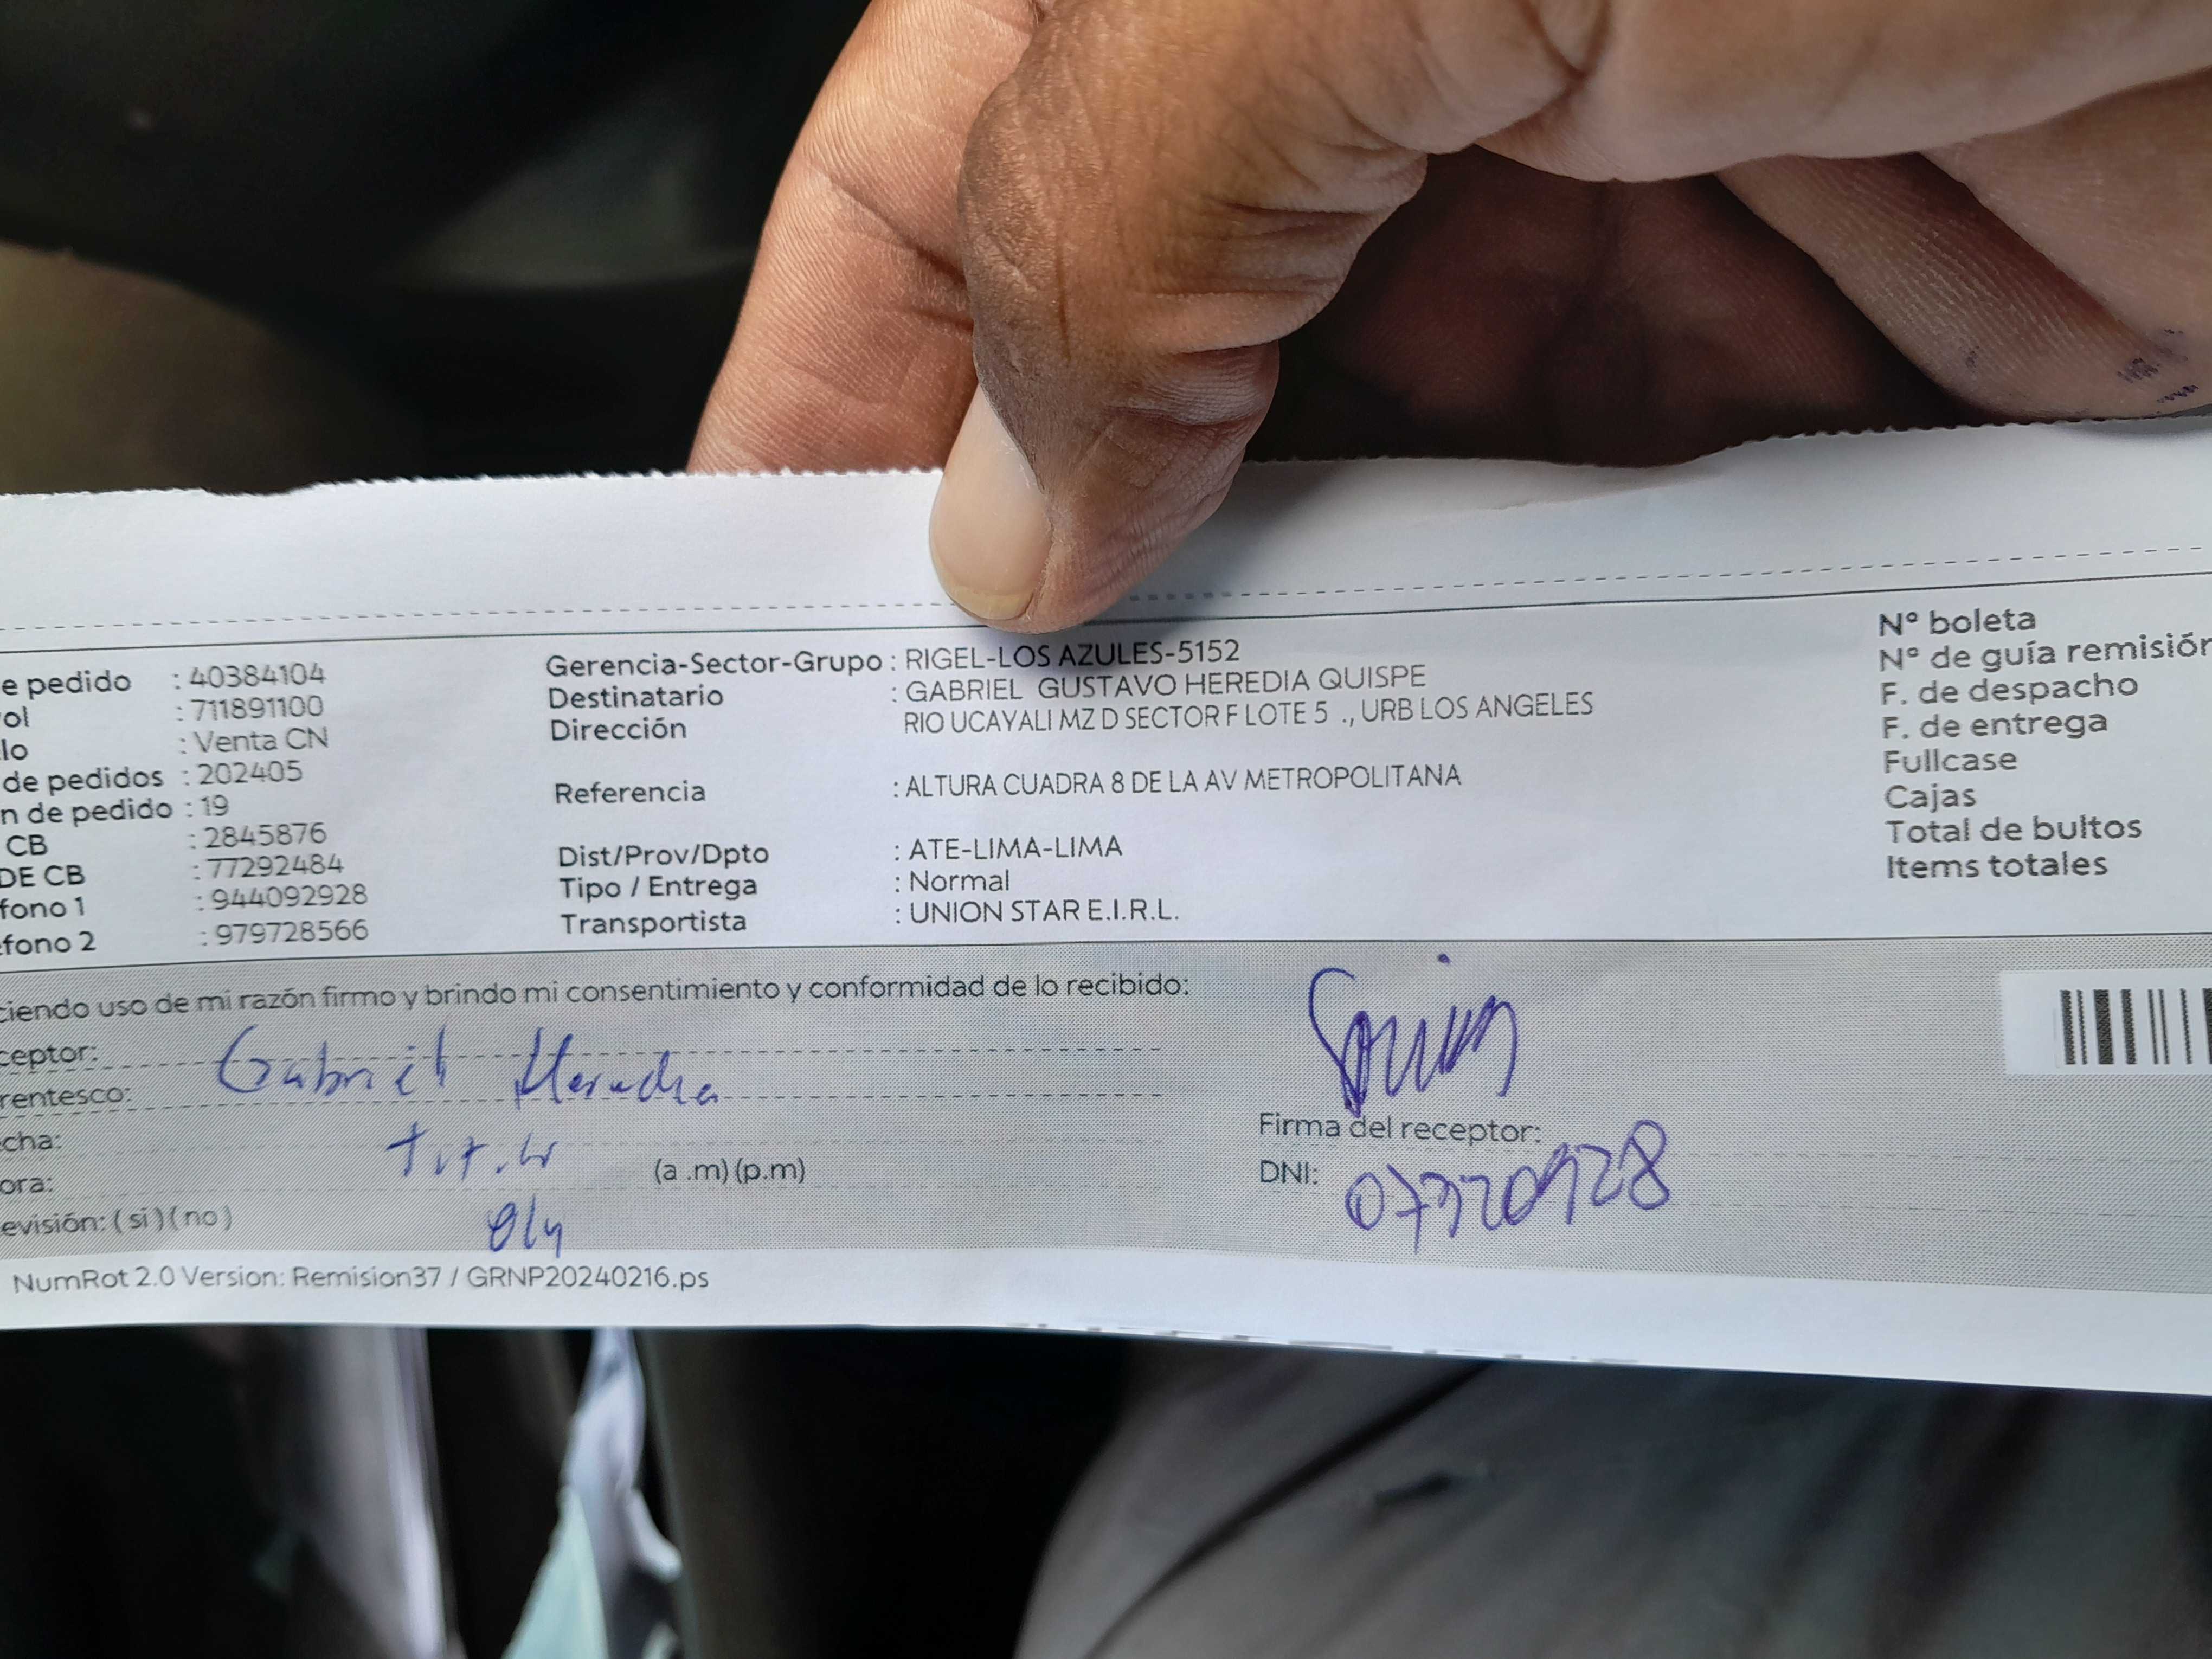 e pedido : 40384104
ol : 711891100
lo : Venta CN
de pedidos : 202405
n de pedido : 19
CB : 2845876
DE CB : 77292484
fono 1 : 944092928
éfono 2 : 979728566
Gerencia-Sector-Grupo : RIGEL-LOS AZULES-5152
Destinatario : GABRIEL GUSTAVO HEREDIA QUISPE
Dirección RIO UCAYALI MZ D SECTOR F LOTE 5 ., URB LOS ANGELES
Referencia : ALTURA CUADRA 8 DE LA AV METROPOLITANA
Dist/Prov/Dpto : ATE-LIMA-LIMA
Tipo / Entrega : Normal
Transportista : UNION STAR E.I.R.L.
Nº boleta
Nº de guía remisión
F. de despacho
F. de entrega
Fullcase
Cajas
Total de bultos
Items totales
ciendo uso de mi razón firmo y brindo mi consentimiento y conformidad de lo recibido:
ceptor: Gabriel Heredia
rentesco:
cha:
ora: (a .m) (p.m)
evisión: ( si ) ( no )
Firma del receptor:
DNI:
NumRot 2.0 Version: Remision37 / GRNP20240216.ps